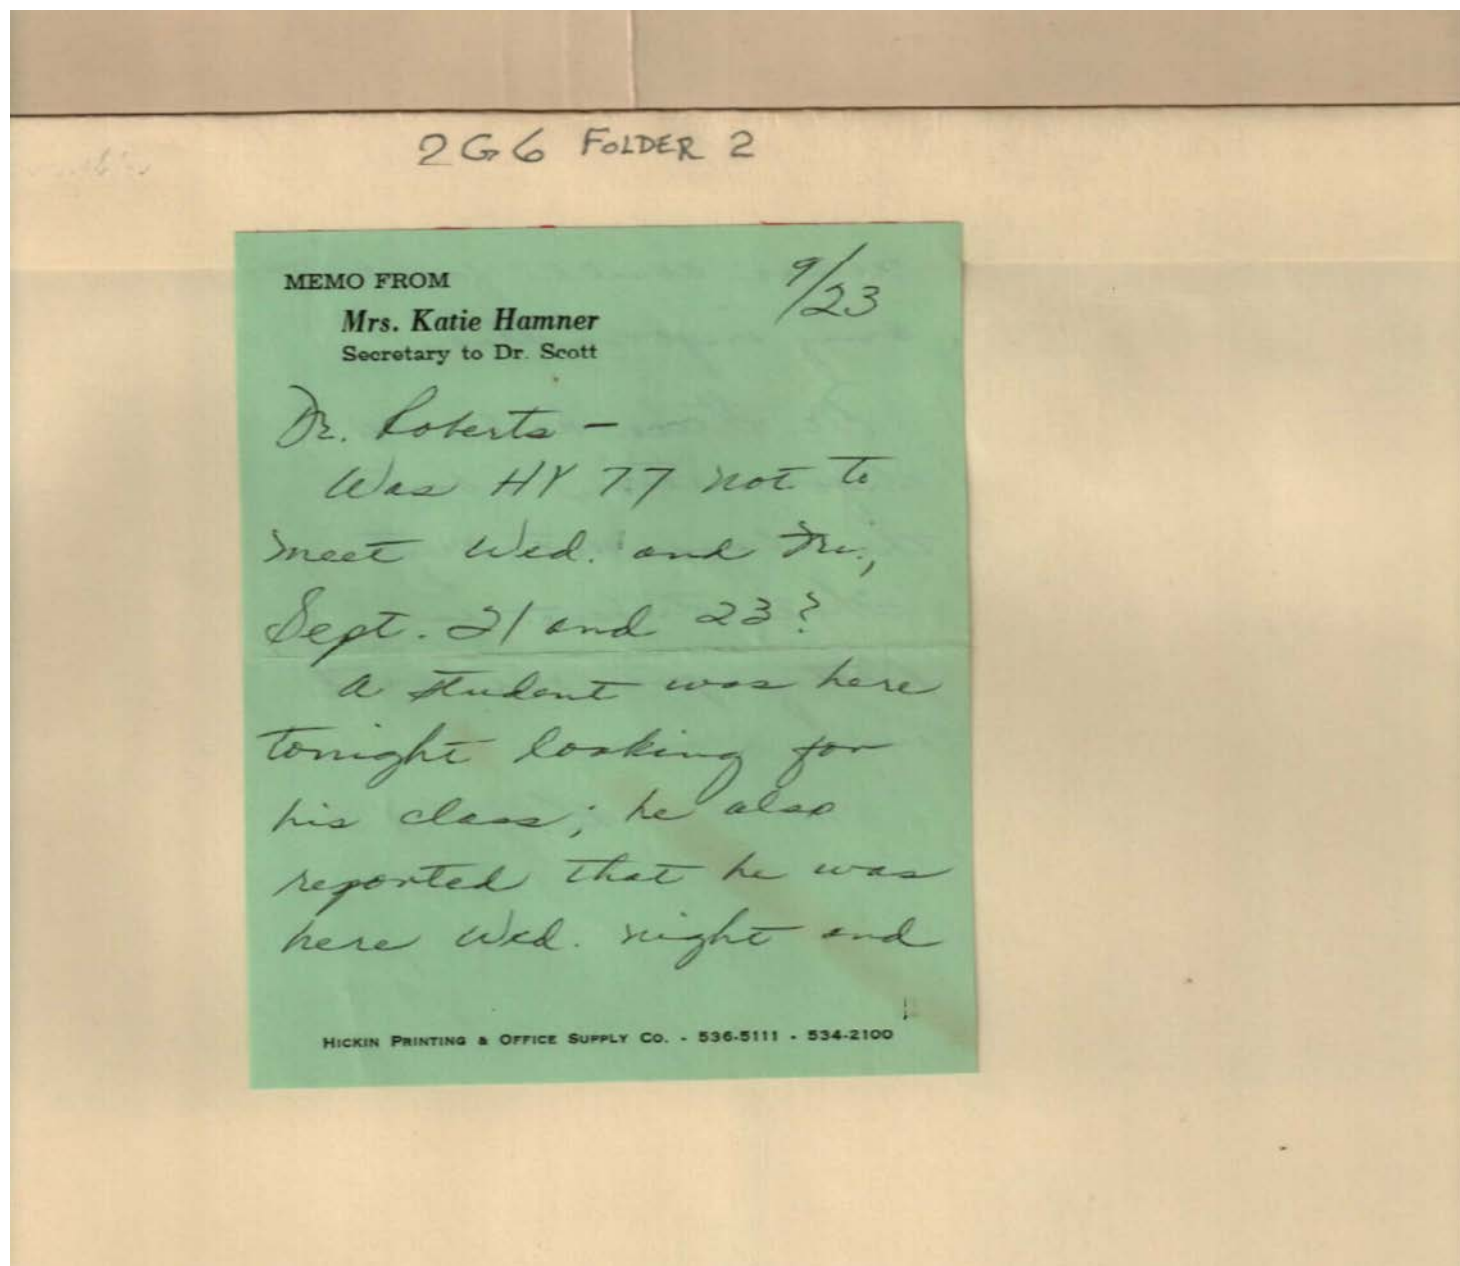 2G6 FOLDER 2
MEMO FROM
9/23
Mrs. Katie Hamner
Secretary to Dr. Scott
Dr. Roberts –
Was HY 77 not to
meet Wed. and Fri.,
Sept. 21 and 23?
A student was here
tonight looking for
his class; he also
reported that he was
here Wed. night and
HICKIN PRINTING & OFFICE SUPPLY CO. - 536-5111 - 534-2100